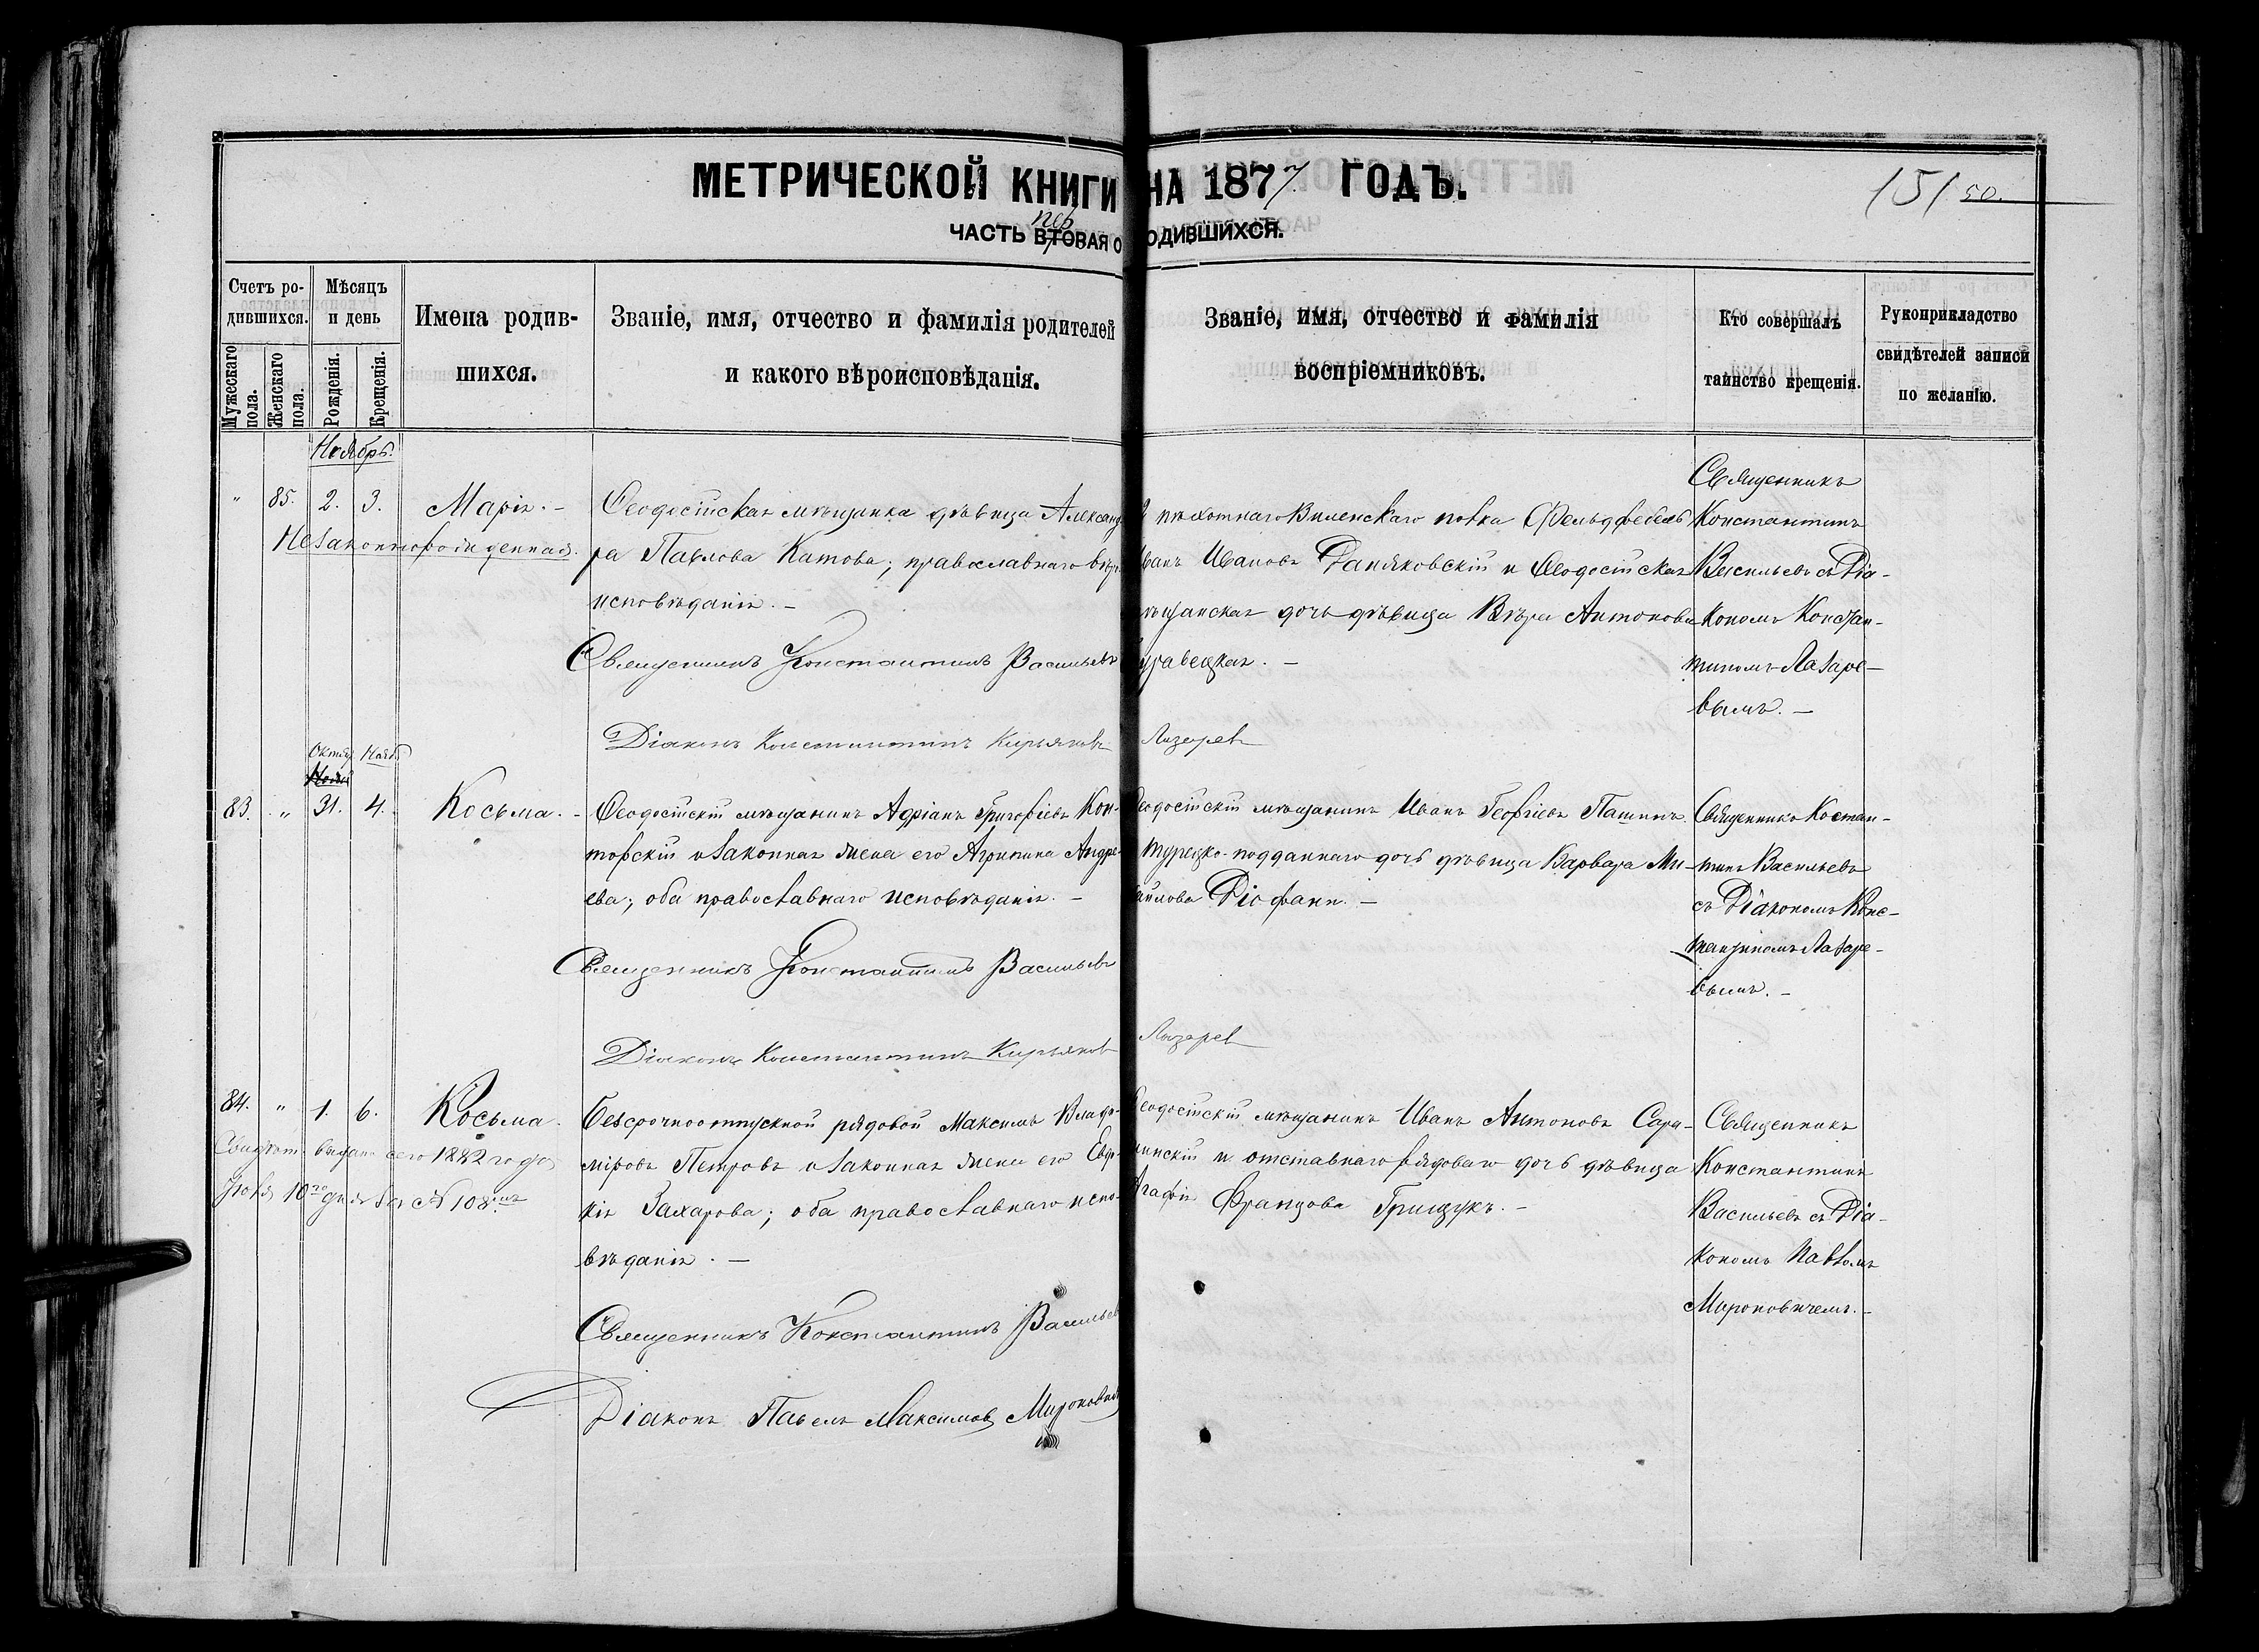 МЕТРИЧЕСКОЙ КНИГИ НА 1877 ГОДЪ.
151 50.
ЧАСТЬ ВТОРАЯ О ОДИВШИХСЯ.
пер
Счетъ родившихся.
Мужескаго пола.
Женскаго пола.
Мѣсяцъ и день
Рожденія.
Крещенія.
Имена родившихся.
Званіе, имя, отчество и фамилія родителей
и какого вѣроисповѣданія.
Званіе, имя, отчество и фамилія
воспріемниковъ.
Кто совершалъ
таинство крещенія.
Рукоприкладство
свидѣтелей записи
по желанію.
Ноябрь.
" 85. 2. 3. Марія. –
Незаконнорожденная.
Ѳеодосійская мѣщанка дѣвица Александ
ра Павлова Катова; православнаго вѣро
исповѣданія. –
Священникъ Константинъ Васильевъ
Діаконъ Константинъ Кирьяковъ Лазарев
пѣхотнаго Виленскаго полка Фельдфебель
ванъ Ивановъ и Ѳеодосійская
мѣщанская дочь дѣвица Вѣра Антонова
равецкая. –
Священникъ
Константинъ
Васильевъ съ Діа-
кономъ Констан-
тиномъ Лазаре-
вымъ. –
Октяб. Нояб.
83. " 31. 4. Косьма. –
Ѳеодосійскій мѣщанинъ Адріанъ Григорьевъ Кон-
торскій и законная жена его Агрипина Андре-
ева; оба православнаго исповѣданія. –
Священникъ Константинъ Васильевъ
Діаконъ Константинъ Кирьяков Лазарев
еодосійскій мѣщанинъ Иванъ Георгіевъ Пашинъ
турецко-подданнаго дочь дѣвица Варвара Ми-
аилова Діофани. –
Священникъ Констан-
тинъ Васильевъ
съ Діакономъ Конс-
тантиномъ Лазаре-
вымъ. –
84. " 1. 6. Косьма.
Свидѣт. выдано сего 1882 года
10го дня за № 108мъ
Безсрочноотпускной рядовой Максимъ Владі-
міровъ Петровъ и законная жена его Евдо-
кія Захарова; оба православнаго испо-
вѣданія. –
Священникъ Константинъ Васильев
Діаконъ Павелъ Максимов Миронович
еодосійскій мѣщанинъ Иванъ Антоновъ Сара-
чинскій и отставнаго рядоваго дочь дѣвица
Агафія Францова Грищукъ. –
Священникъ
Константинъ
Васильевъ съ Діа-
кономъ Павломъ
Мироновичемъ. –